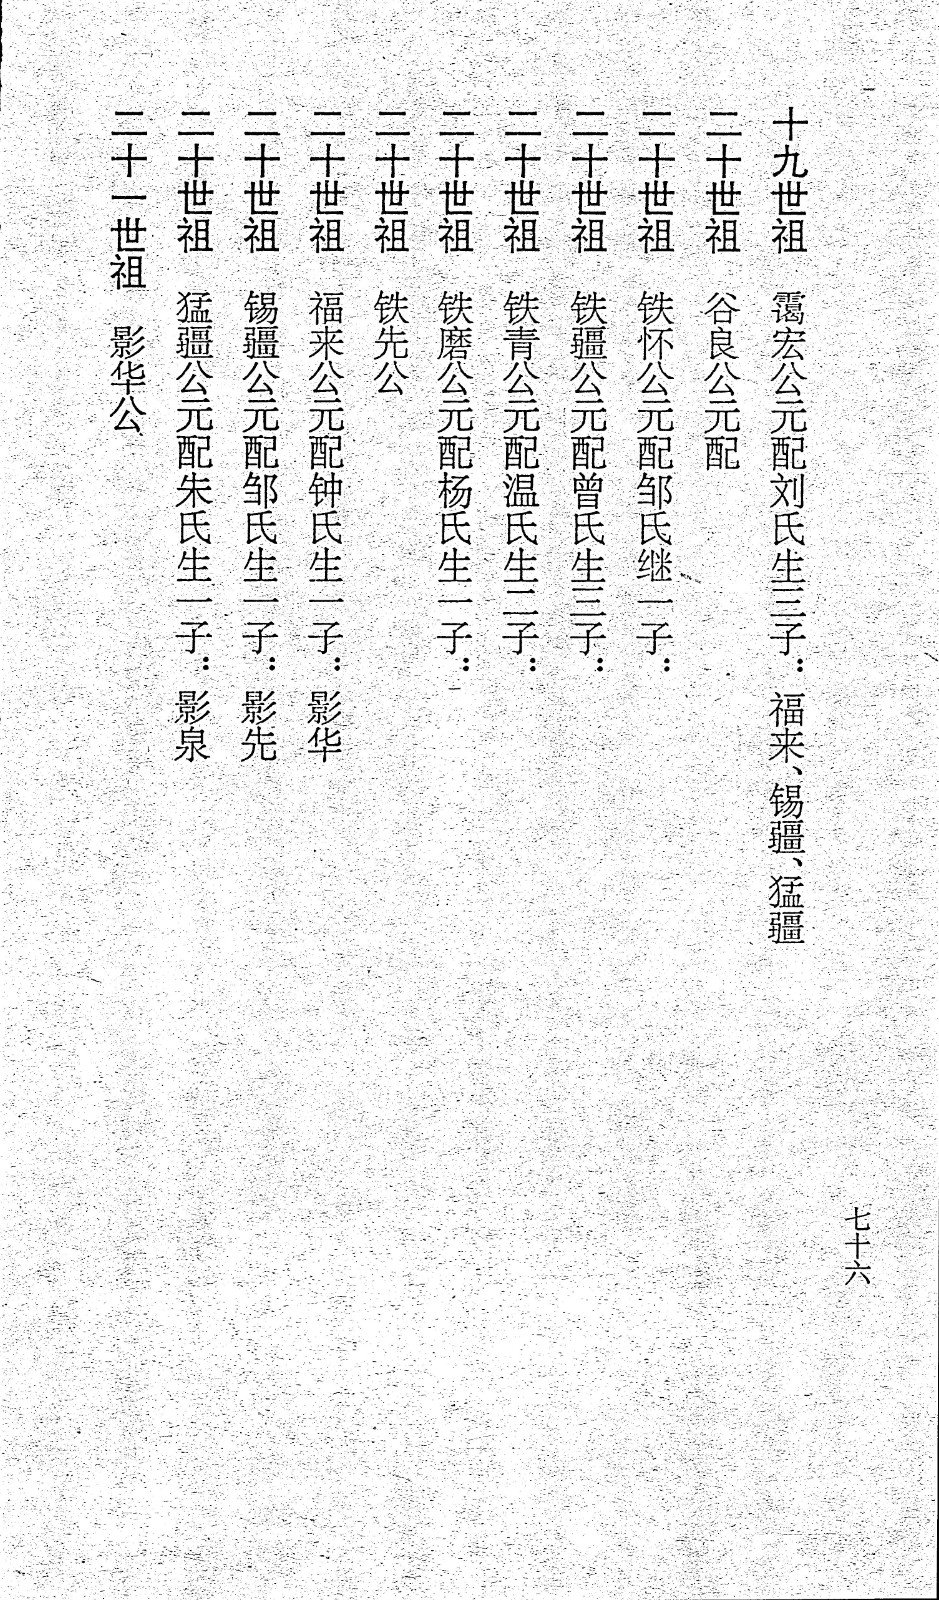 七十六
十九世祖 霭宏公元配刘氏生三子：福来、锡疆、猛疆
二十世祖 谷良公元配
二十世祖 铁怀公元配邹氏继一子：
二十世祖 铁疆公元配曾氏生三子：
二十世祖 铁青公元配温氏生二子：
二十世祖 铁磨公元配杨氏生一子：
二十世祖 铁先公
二十世祖 福来公元配钟氏生一子：影华
二十世祖 锡疆公元配邹氏生一子：影先
二十世祖 猛疆公元配朱氏生一子：影泉
二十一世祖 影华公